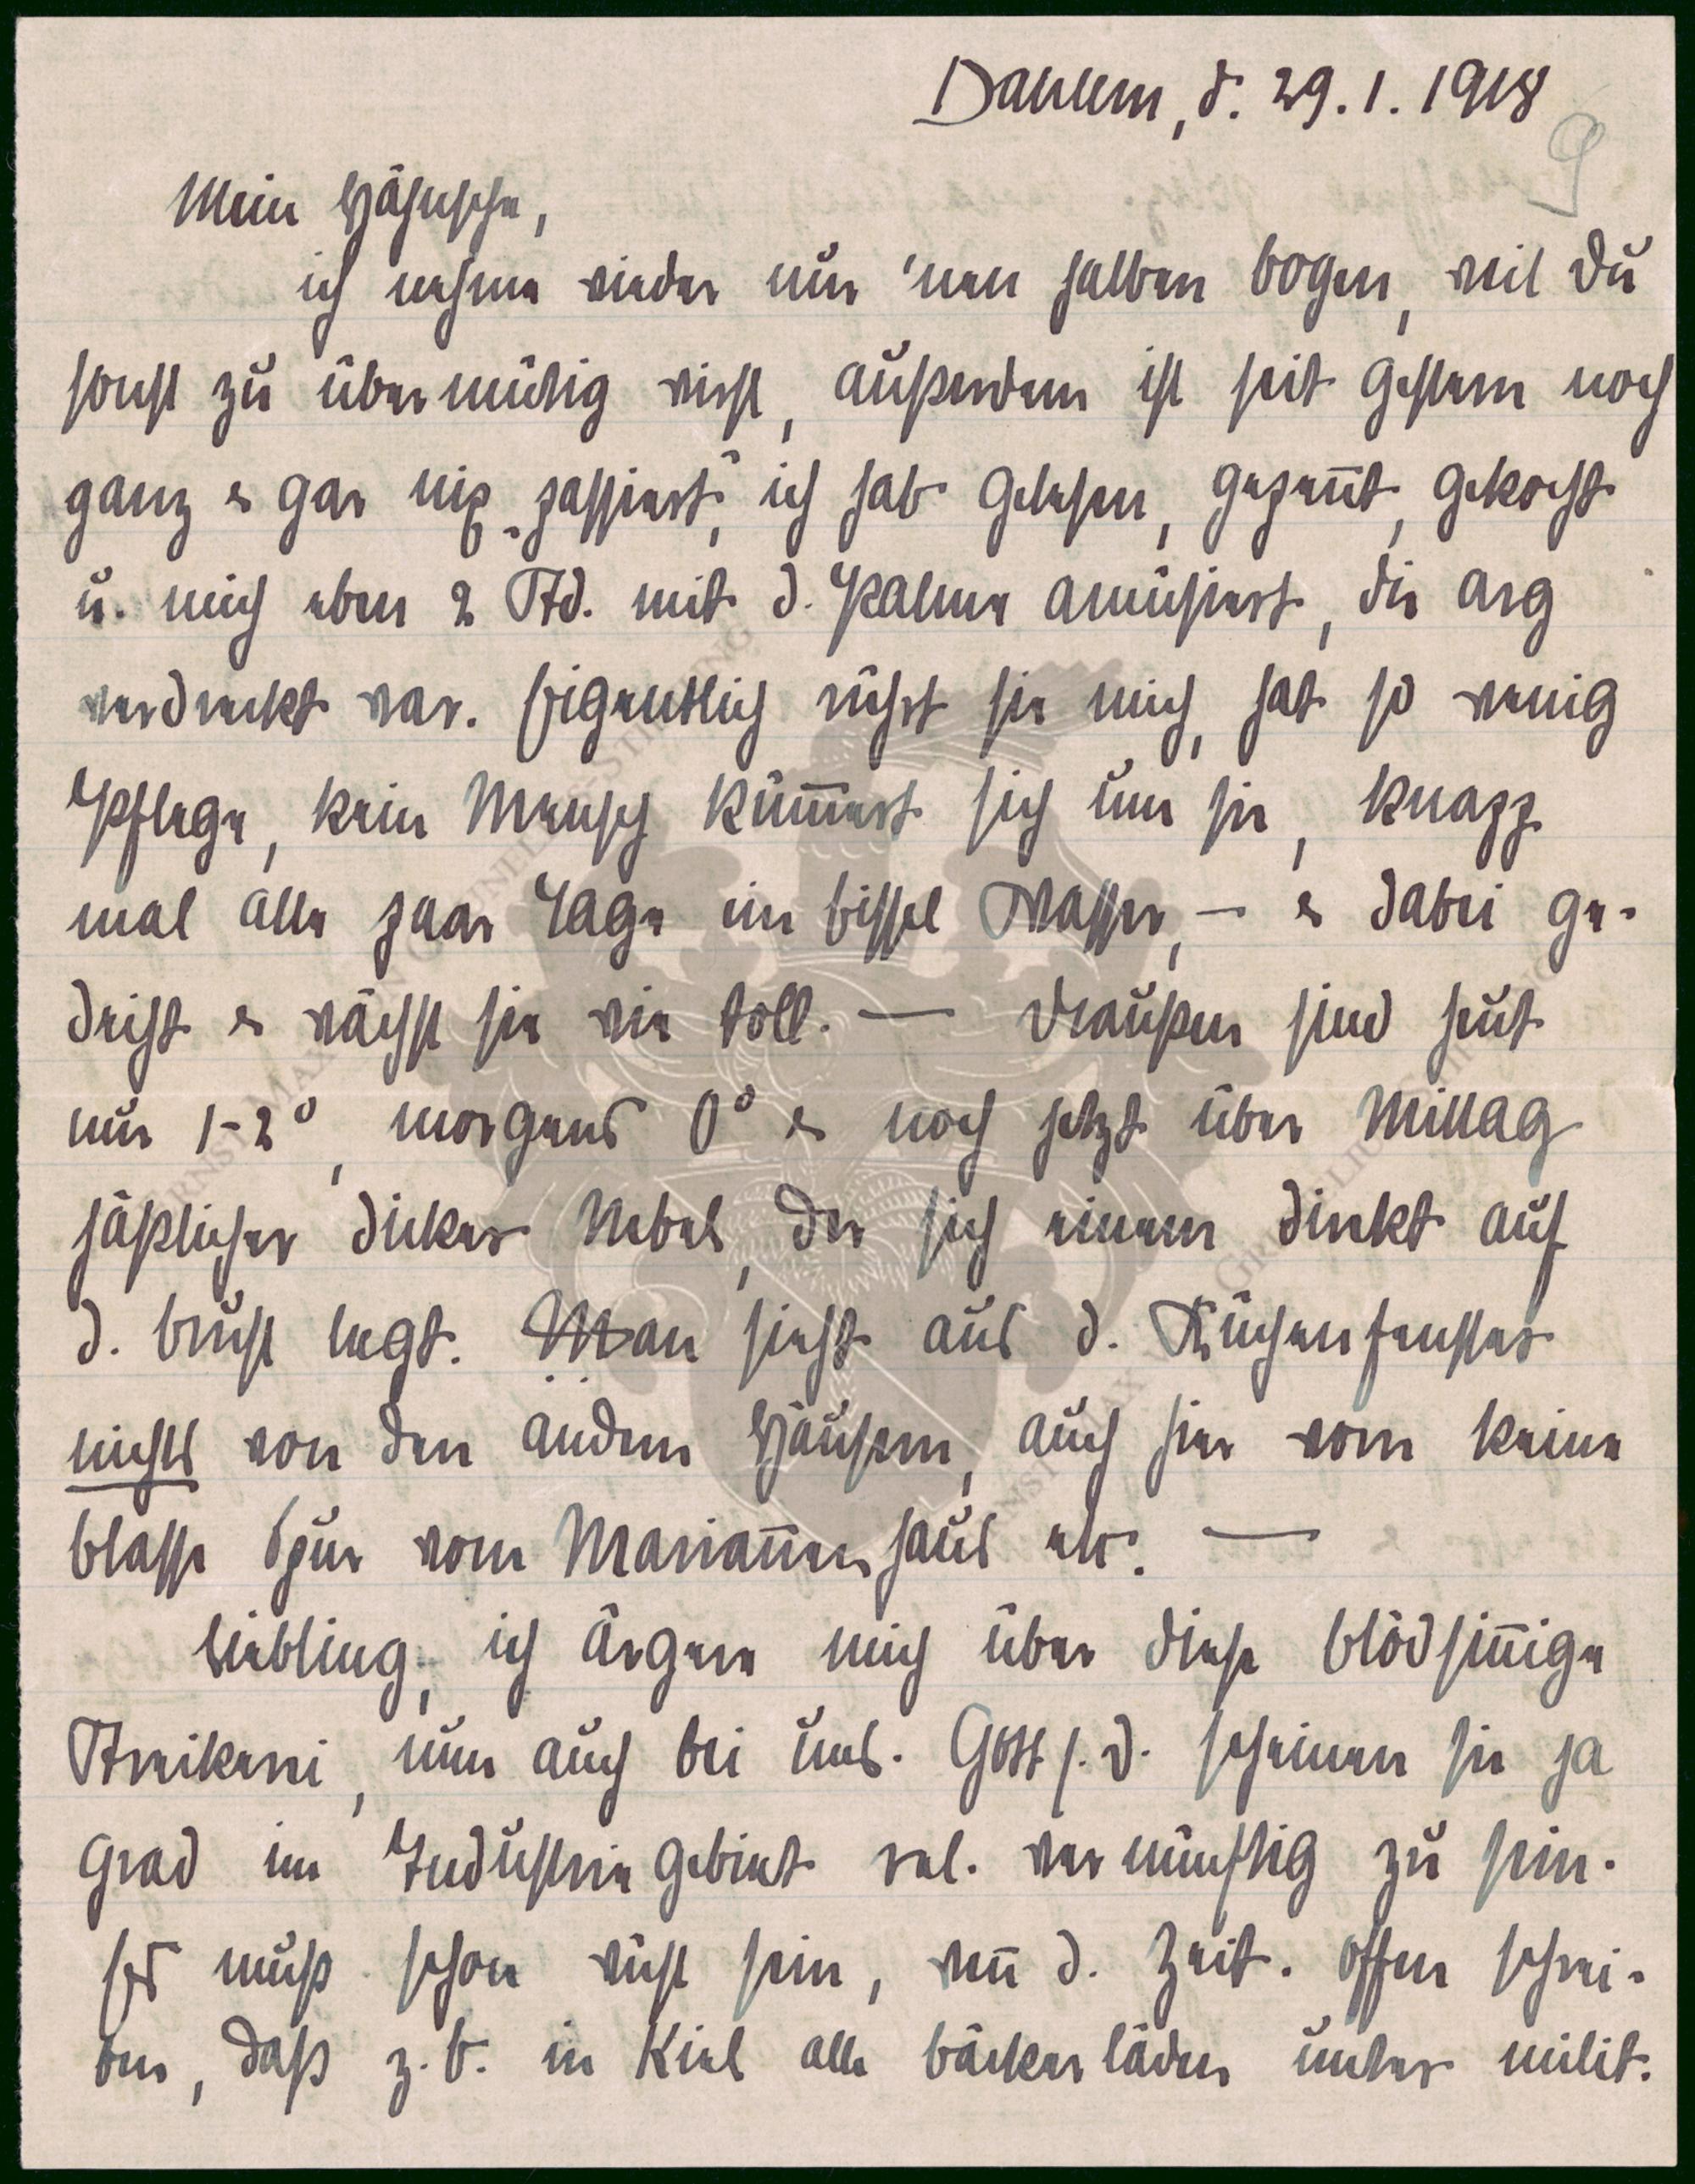 Dahlem, d. 29.1.1918
9
Mein Hähnche,
ich nehme wieder nur 'nen halben Bogen, weil Du
sonst zu übermütig wirst, außerdem ist seit gestern noch
ganz & gar nix „passiert", ich hab gelesen, genäht, gekocht
u. mich eben 2 Std. mit d. Palme amüsiert, die arg
verdreckt war. Eigentlich rührt sie mich, hat so wenig
Pflege, kein Mensch kümmert sich um sie, knapp
mal alle paar Tage ein bissel Wasser, — & dabei ge-
deiht & wächst sie wie toll. — Draußen sind heut
nur 1-2°, morgens 0° & noch jetzt über Mittag
häßlicher dicker Nebel, der sich einem direkt auf
d. Brust legt. Man sieht aus d. Küchenfenster
nichts von den andern Häusern, auch hier vorn keine
blasse Spur vom Mariannenhaus etc. —
Liebling, ich ärgere mich über diese blödsinnige
Streikerei, nun auch bei uns. Gott s. D. scheinen sie ja
grad im Industriegebiet rel. vernünftig zu sein.
Es muß schon wüst sein, wenn d. Zeit. offen schrei-
ben, daß z. B. in Kiel alle Bäckerläden unter milit.
ERNST MAX VON GRUNELIUS-STIFTUNG
ERNST MAX VON GRUNELIUS-STIFTUNG